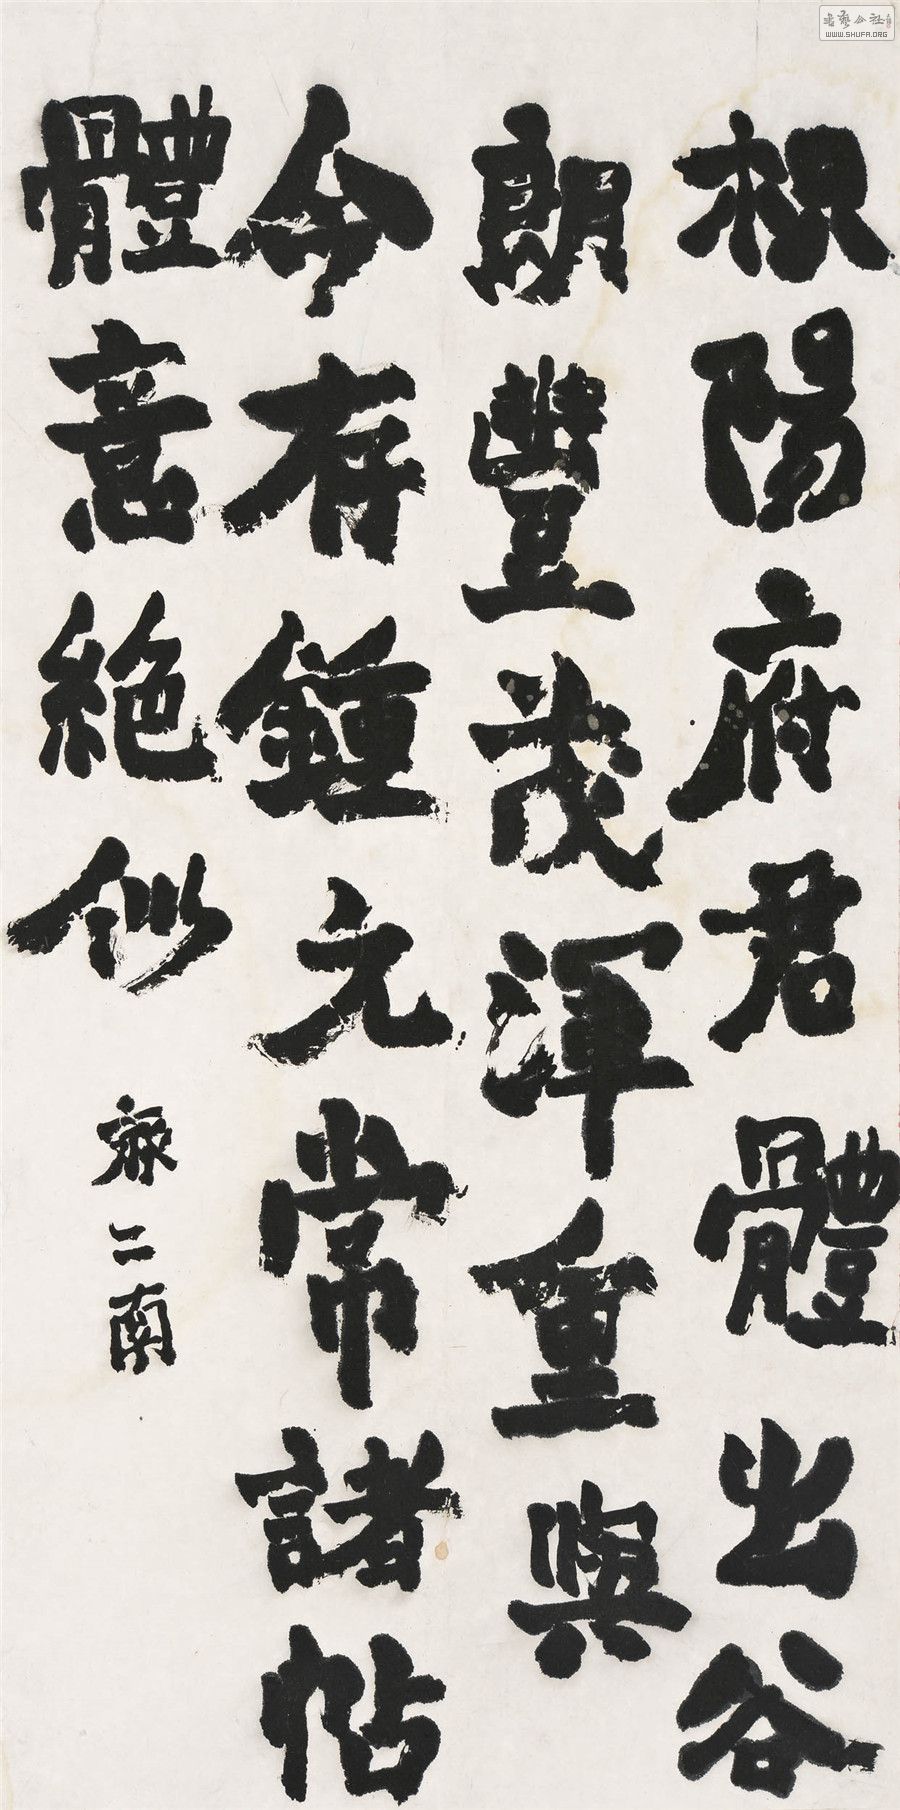 枳陽府君體出谷
朗豐茂渾重與
今存鍾元常諸帖
體意絕似
齊二南
書藝公社
WWW.SHUFA.ORG